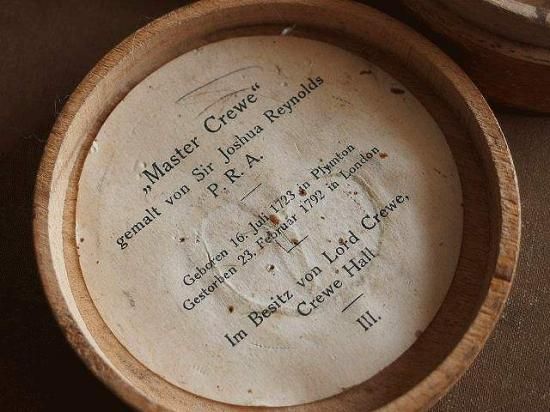 „Master Crewe“
gemalt von Sir Joshua Reynolds
P. R. A.
Geboren 16. Juli 1723 in Plymton
Gestorben 23. Februar 1792 in London
Im Besitz von Lord Crewe,
Crewe Hall.
III.